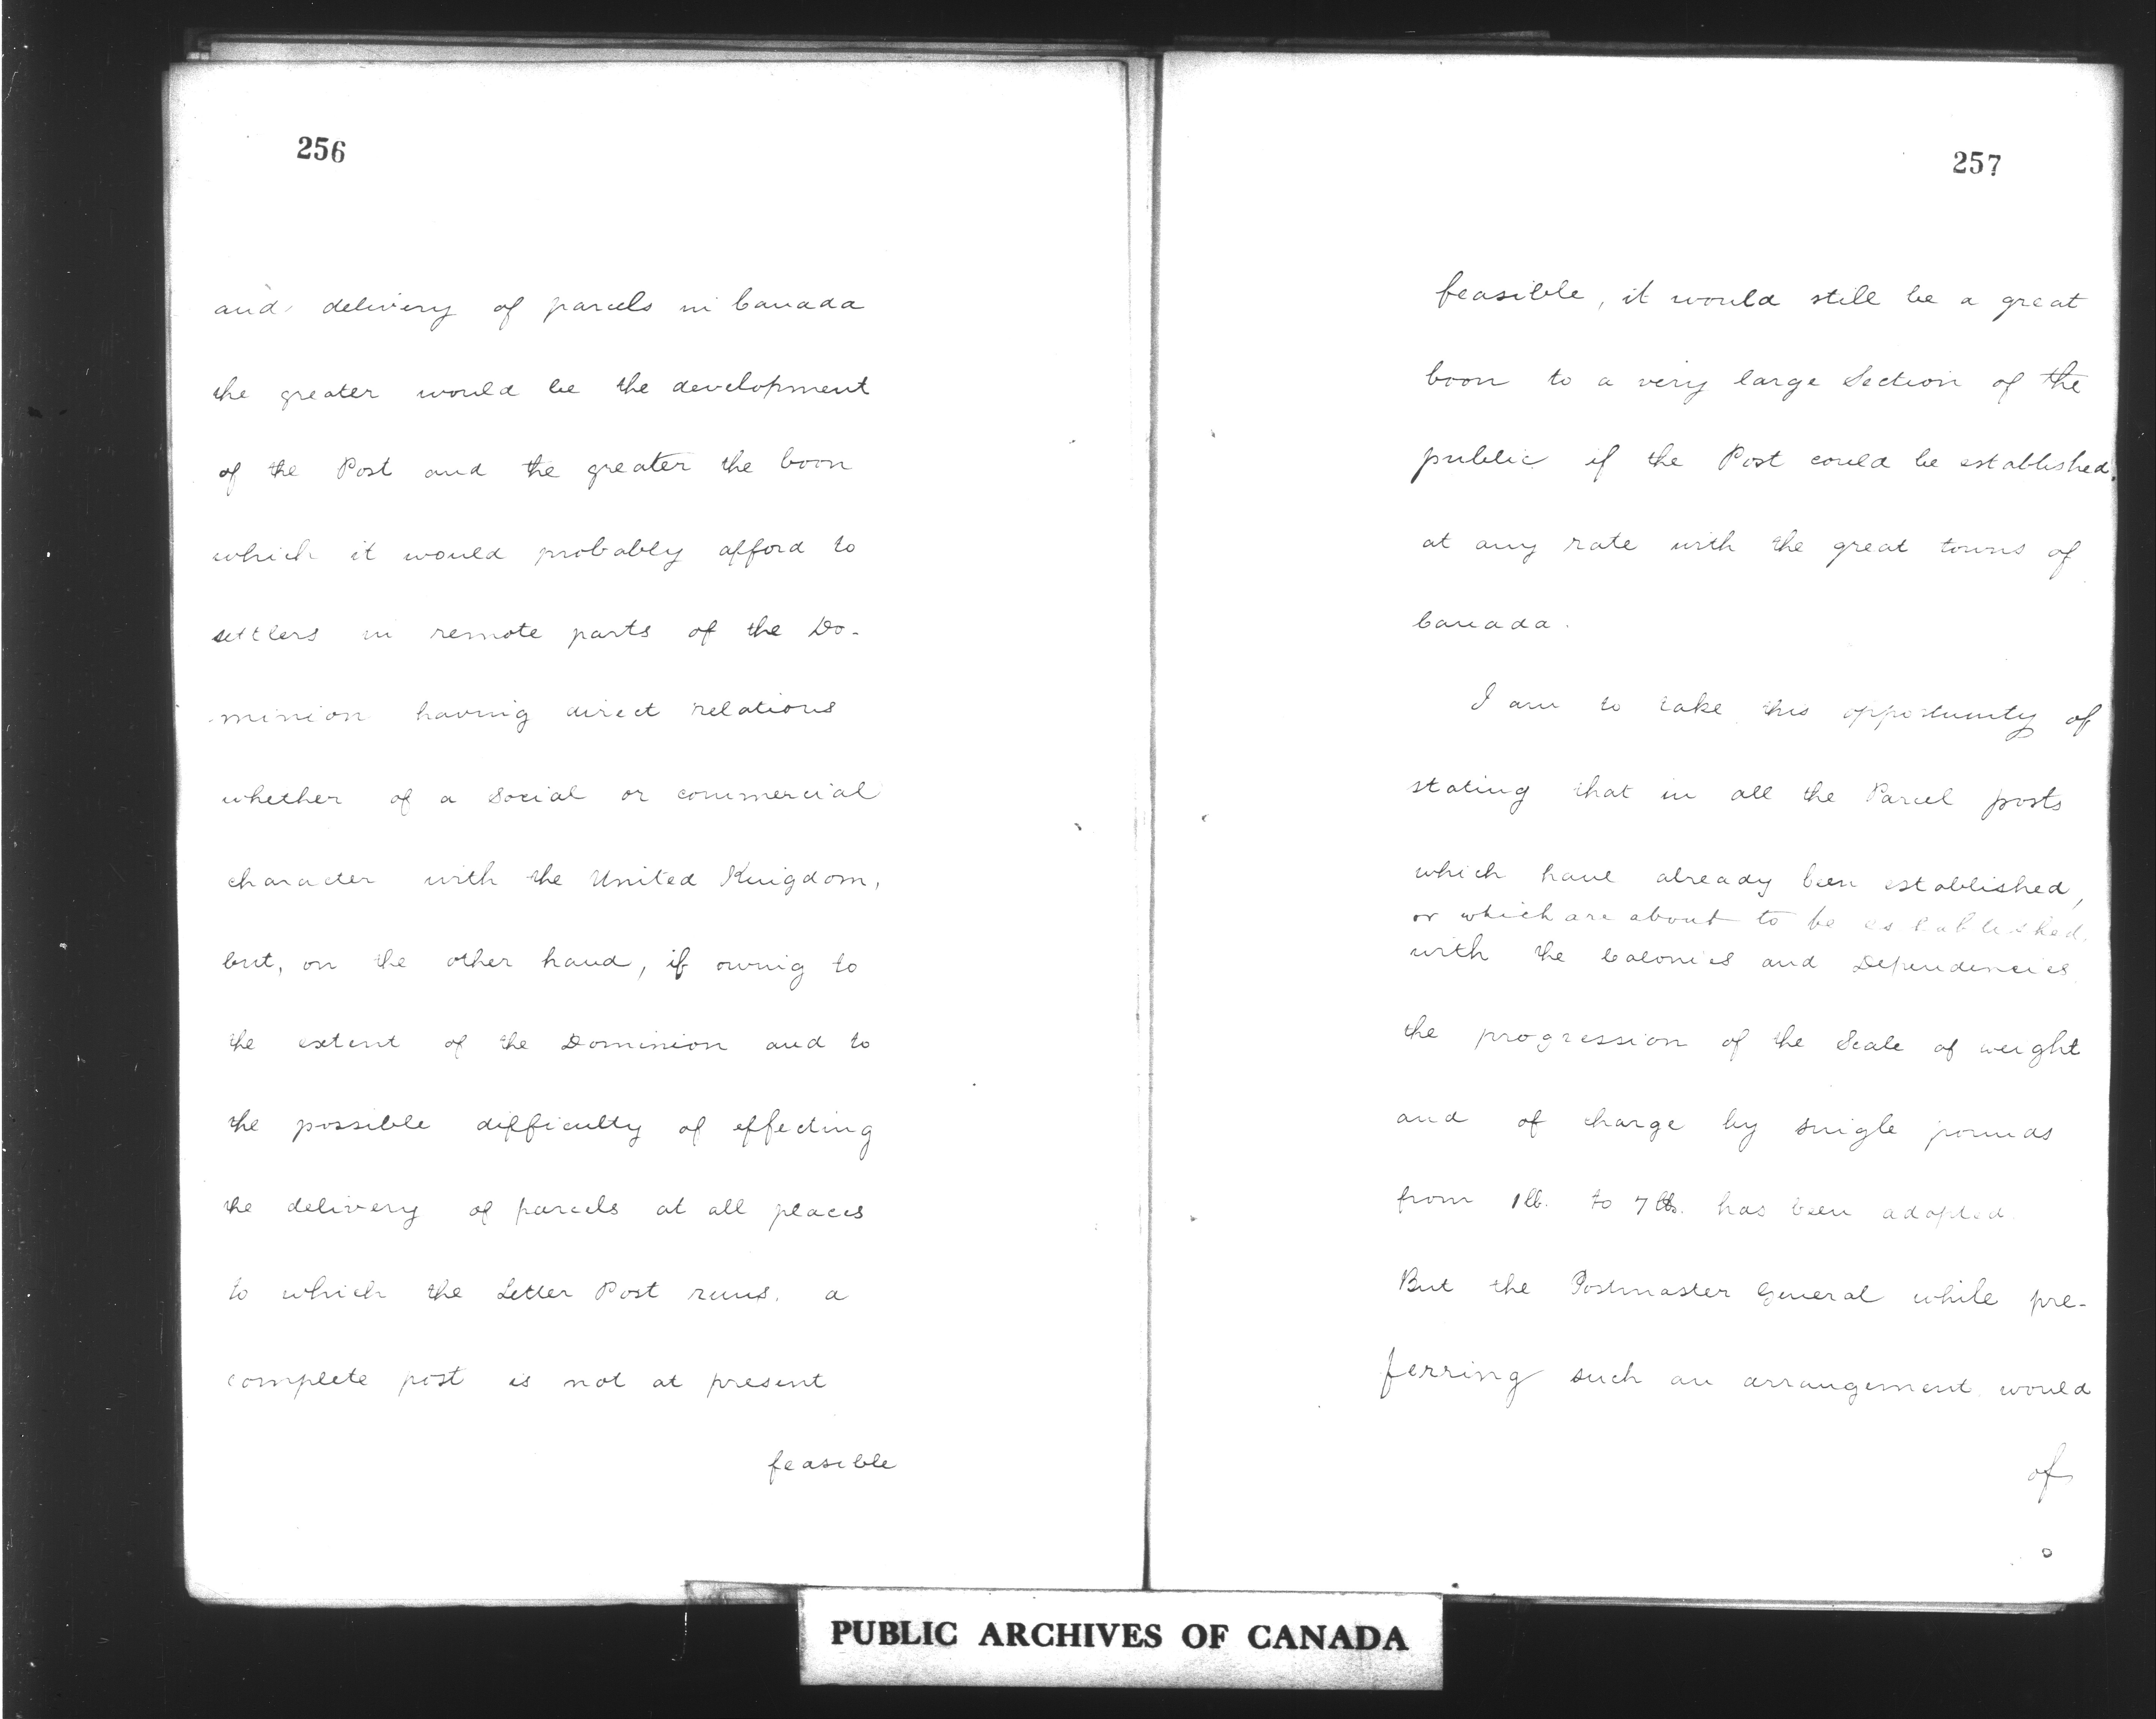 256
and delivery of parcels in Canada
the greater would be the development
of the Post and the greater the boon
which it would probably afford to
settlers in remote parts of the Do-
minion having direct relations
whether of a Social or commercial
character with the United Kingdom,
but, on the other hand, if owing to
the extent of the Dominion and to
the possible difficulty of effecting
the delivery of parcels at all places
to which the Letter Post runs, a
complete post is not at present
feasible
257
feasible, it would still be a great
boon to a very large Section of the
public if the Post could be established,
at any rate with the great towns of
Canada.
I am to take this opportunity of
stating that in all the Parcel posts
which have already been established,
or which are about to be established,
with the Colonies and Dependencies
the progression of the Scale of weight
and of charge by single pounds
from 1 lb. to 7 lbs. has been adopted.
But the Postmaster General while pre-
ferring such an arrangement would
of
PUBLIC ARCHIVES OF CANADA